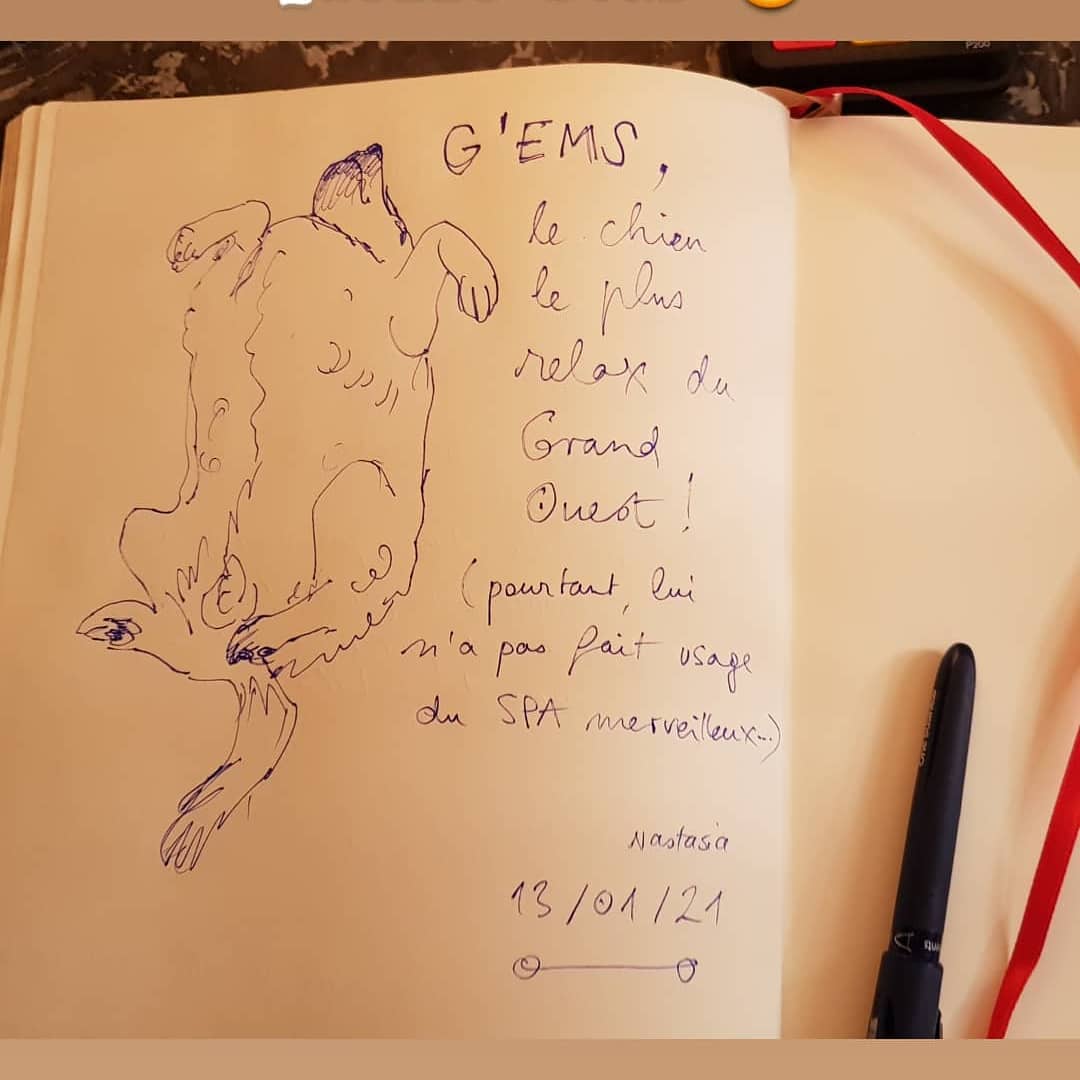 G'EMS,
le chien
le plus
relax du
Grand
Ouest !
(pourtant, lui
n'a pas fait usage
du SPA merveilleux...)
Nastasia
13/01/21
P200